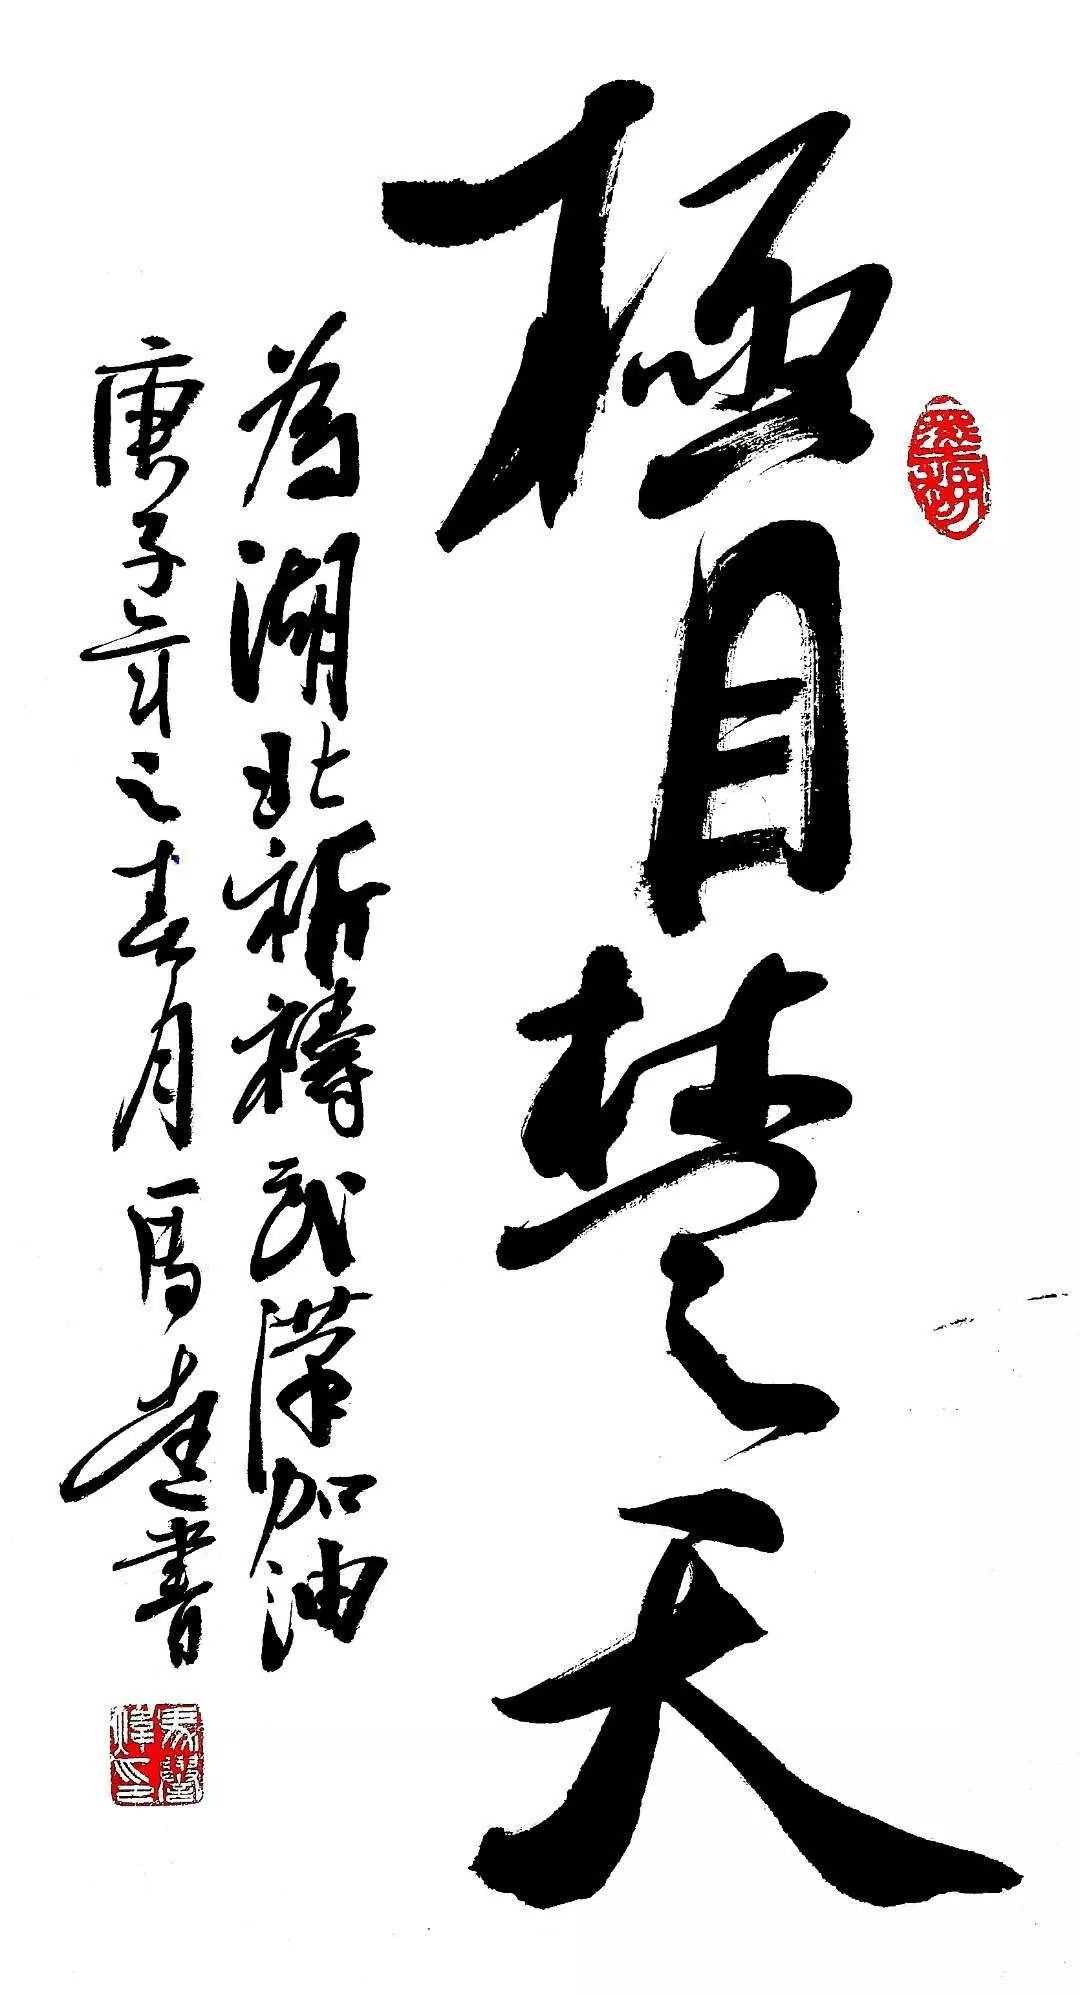 極目楚天
為湖北祈禱武漢加油
庚子年之春月馬建書